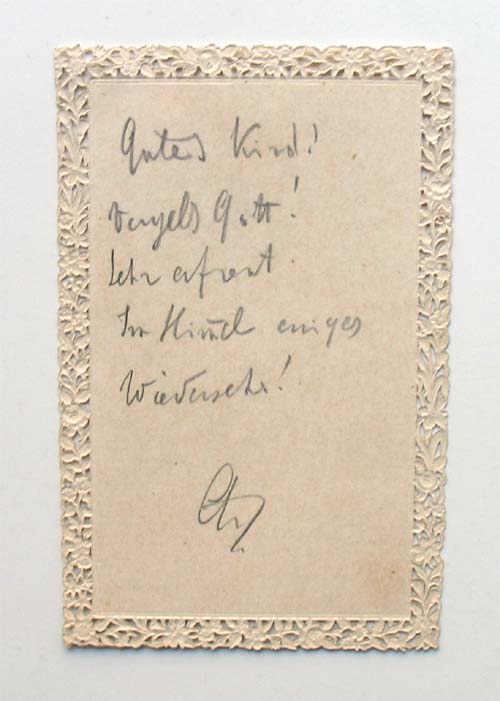 Gutes Kind!
Vergelts Gott!
Sehr erfreut.
Im Himel ewiges
Wiedersehn!